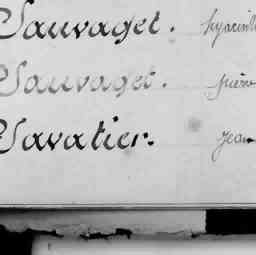 Sauvaget. hyacinth
Sauvaget. pierre
Savatier. jean